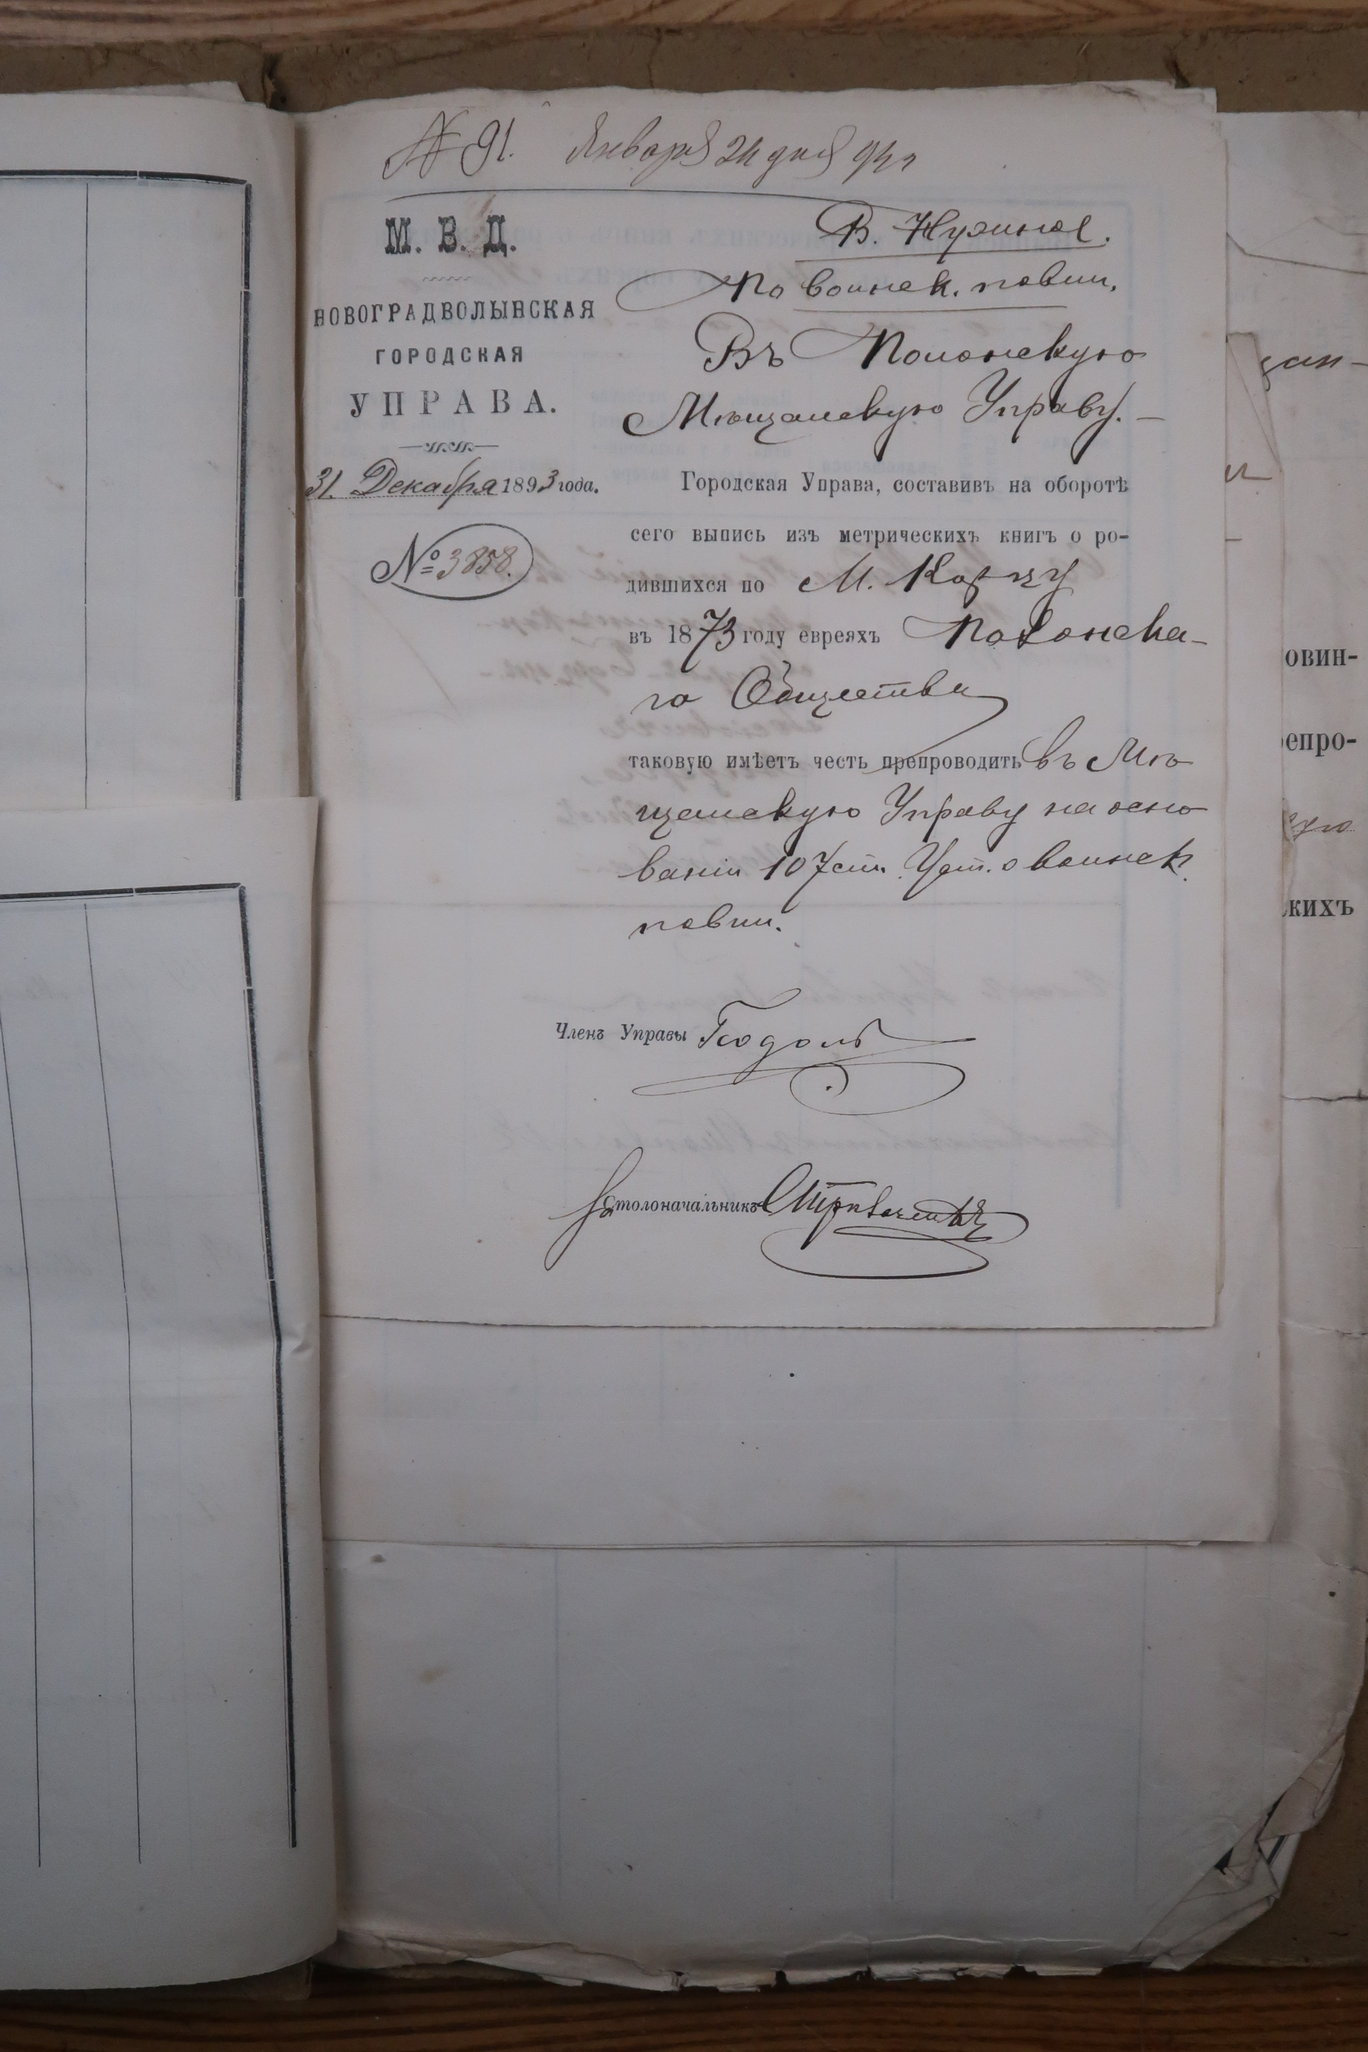 № 91. Января 24 дня 94 г
М. В. Д.
НОВОГРАДВОЛЫНСКАЯ
ГОРОДСКАЯ
УПРАВА.
31. Декабря 1893 года.
№ 3858.
В. Нужное.
По воинск. повин.
Въ Полонскую
Мѣщанскую Управу. —
Городская Управа, составивъ на оборотѣ
сего выпись изъ метрическихъ книгъ о ро-
дившихся по М. Корцу
въ 1873 году евреяхъ Полонска-
го Общества
таковую имѣетъ честь препроводить въ Мѣ
щанскую Управу на осно
ваніи 107 ст. Уст. о воинск.
повин.
Членъ Управы
Столоначальникъ
овин-
репро-
скихъ